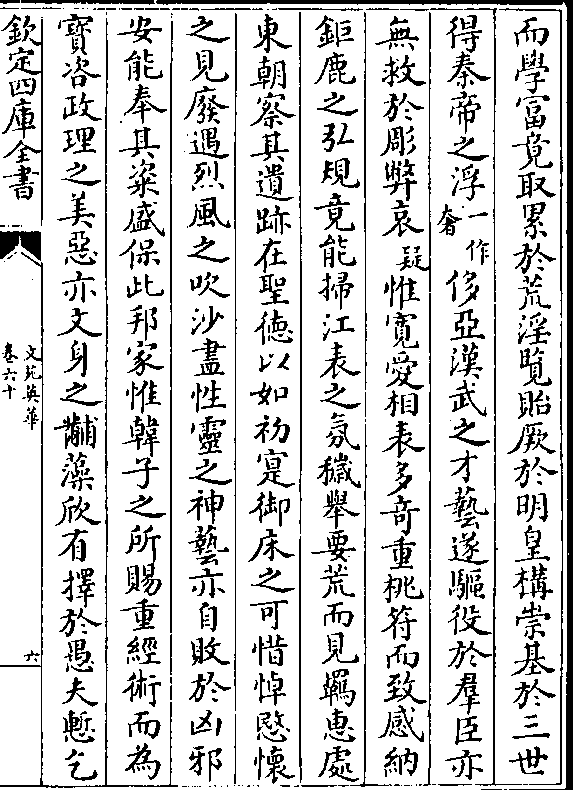 而學冨竟取累於荒淫覽貽厥於明皇構崇基於三世
得秦帝之浮一作奢侈亞漢武之才藝遂驅役於羣臣亦
無救於彫弊哀疑惟寛愛相表多竒重桃符而致感納
鉅鹿之弘規竟能掃江表之氛穢舉要荒而見羈惠處
東朝察其遺跡在聖徳以如初寔御床之可惜悼愍懷
之見廢遇烈風之吹沙盡性靈之神藝亦自敗於凶邪
安能奉其粢盛保此邦家惟韓子之所賜重經術而為
寳咨政理之美惡亦文身之黼藻欣有擇於愚夫慙乞
欽定四庫全書
文苑英華
卷六十
六